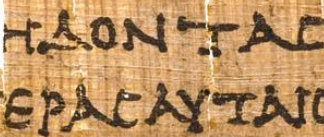 ΗΔΟΝΤΑϹ
ΕΡΑϹΑΥΤΑΙϹ